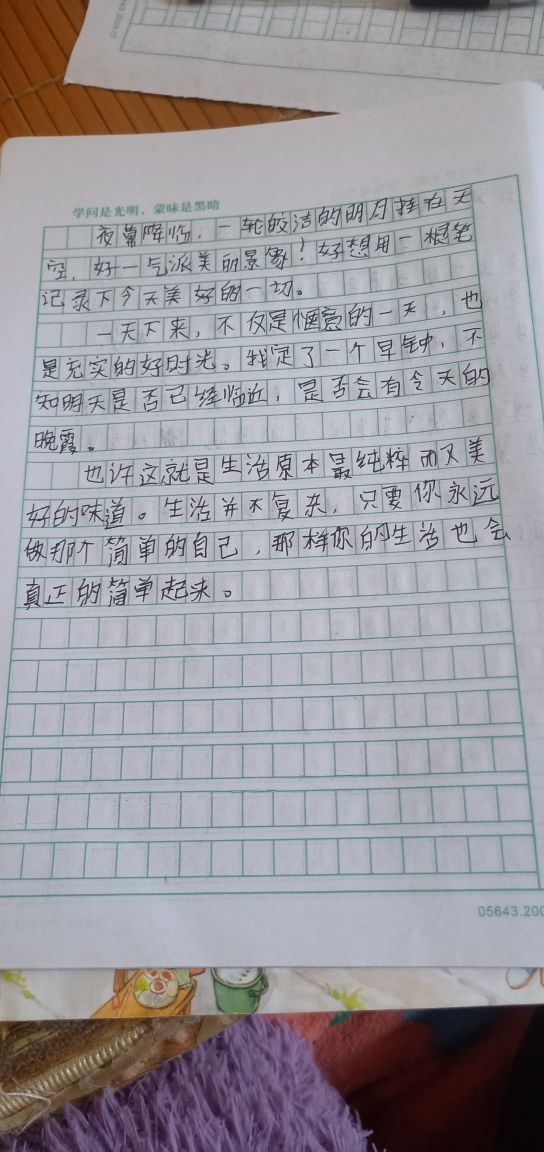 学问是光明，蒙昧是黑暗
夜幕降临，一轮皎洁的明月挂在天
空，好一气派美丽景象！好想用一根笔
记录下今天美好的一切。
一天下来，不仅是惬意的一天，也
是充实的好时光。我定了一个早钟，不
知明天是否已经临近，是否会有今天的
晚霞。
也许这就是生活原本最纯粹而又美
好的味道。生活并不复杂，只要你永远
做那个简单的自己，那样你的生活也会
真正的简单起来。
05643.200